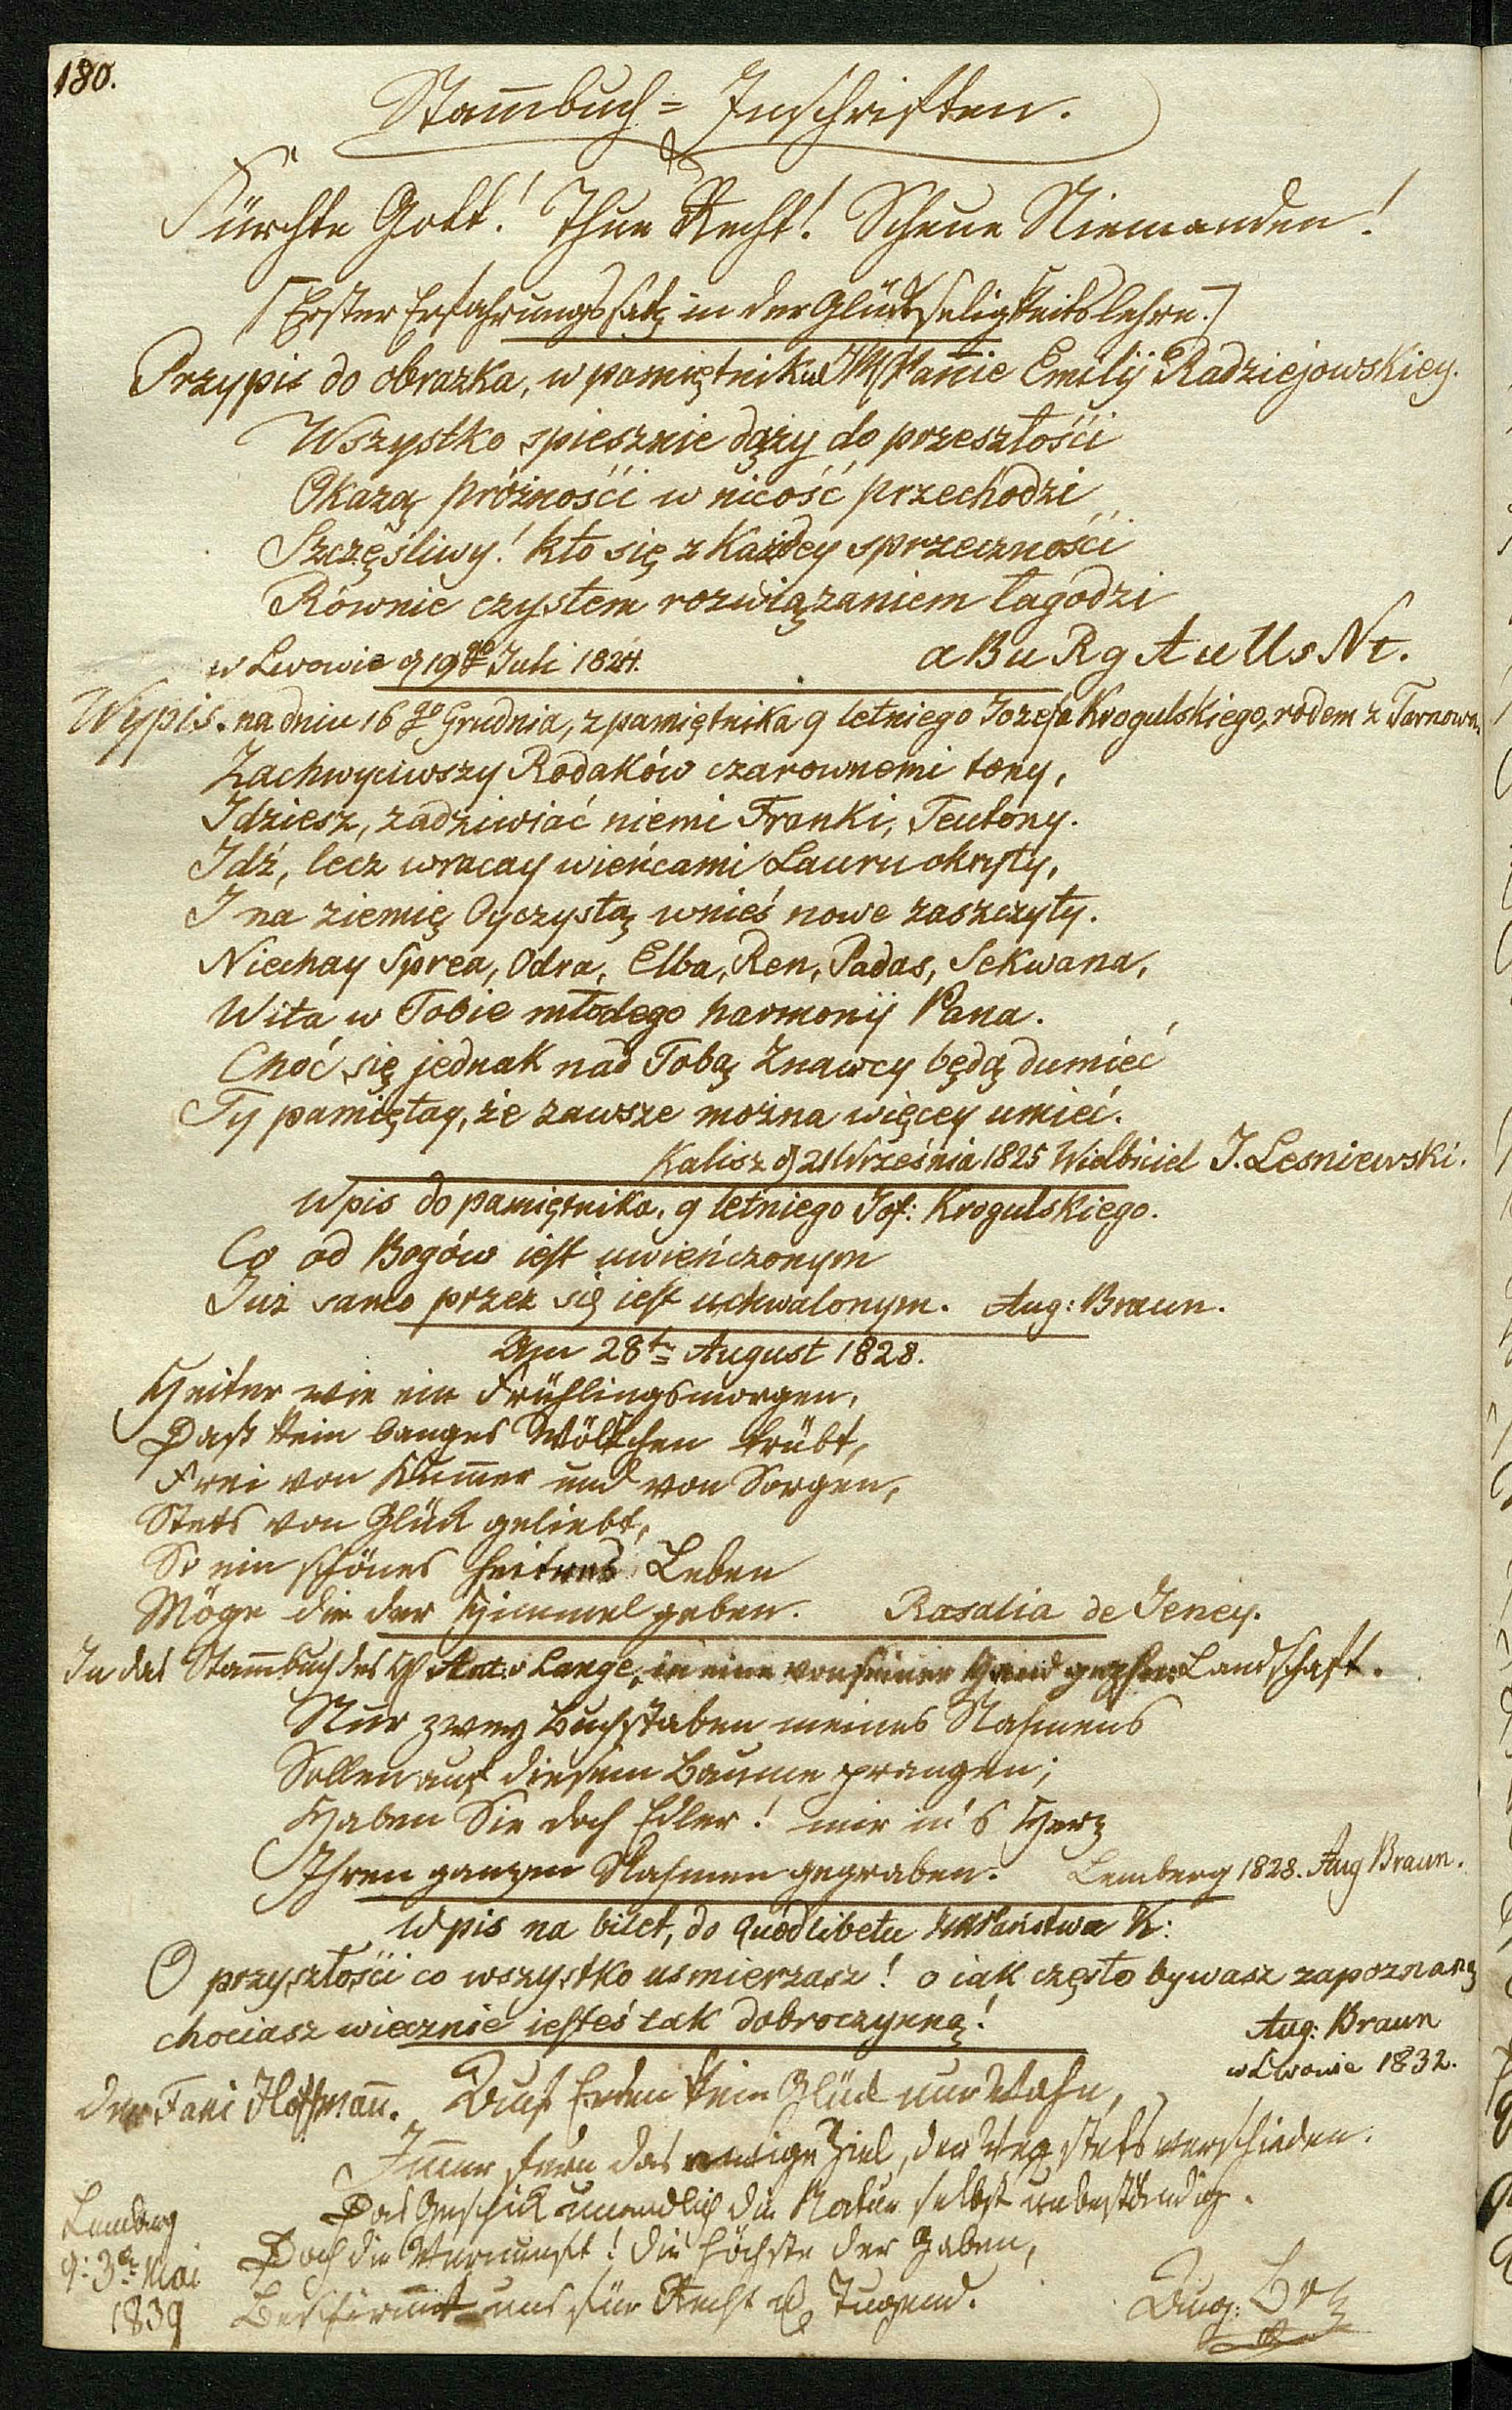 180.
Stam̄buch = Inschriften.
Fürchte Gott! Thue Recht! Scheue Niemanden!
[Erster Erfahrungssatz in der Glückseligkeitslehre.]
Przypis do obrazka, w pamiętniku JM Pannie Emilij Radziejowskiey.
Wszystko spiesznie dąży do przeszłośći
Okazą prόżnośći w nicość przechodzi
Szczęśliwy! kto się z Każdey sprzecznośći
Rόwnie czystem rozwiązaniem łagodzi
w Lwowie d 19go Juli 1824. aBuRgAuUsNt.
Wypis. na dniu 16go Grudnia, z pamiętnika 9 letniego Jozefa Krogulskiego, rodem z Tarnowa.
Zachwyciwszy Rodakόw czarownemi tony,
Idziesz, zadziwiać niemi Franki, Teutony.
Idź, lecz wracay wieńcami Lauru okryty,
I na ziemię Oyczystą wnieś nowe zaszczyty.
Niechay Sprea, Odra, Elba, Ren, Padas, Sekwana,
Wita w Tobie młodego harmonij Pana.
Choć się jednak nad Tobą Znawcy będą dumieć
Ty pamiętay, że zawsze można więcey umieć.
Kalisz d 21 Września 1825 Wielbiciel J. Lesniewski.
Wpis do pamiętnika, 9 letniego Jof: Krogulskiego.
Co od Bogόw iest uwieńczonym
Już samo przez się iest uchwalonym. Aug: Braun.
Am 28t August 1828.
Heiter wie ein Frühlingsmorgen,
Daß kein banges Wölkchen trübt,
Frei von Kum̄er und von Sorgen,
Stets von Glück geliebt,
So ein schönes heitres Leben
Möge die der Himmel geben. Rosalia de Jeney.
In das Stam̄buch des H Ant. v Lange, in eine von seiner Hand Landschaft.
Nur zwey Buchstaben meines Nahmens
Sollen auf diesem Baume prangen;
Haben Sie doch Edler! mir in's Herz
Ihren ganzen Nahmen gegraben. Lemberg 1828. Aug Braun.
Wpis na bilet, do quodlibetu Państwa K:
O przyszłośći co wszystko usmierzasz! o iak często bywasz zapoznaną
chociasz wiecznie iesteś tak dobroczynną!
Aug: Braun
w Lwowie 1832.
Der Fani Hoffman̄. Auf Erden kein Glück nur Wahn,
Im̄er fern das ewige Ziel, der Weg stets verschieden.
Das Geschick unendlich die Natur selbst unbeständig.
Doch die Vernunft! die höchste der Gaben,
Bestim̄t uns für Recht & Tugend.
Lemberg
d: 3t Mai
1839
Aug: Brn